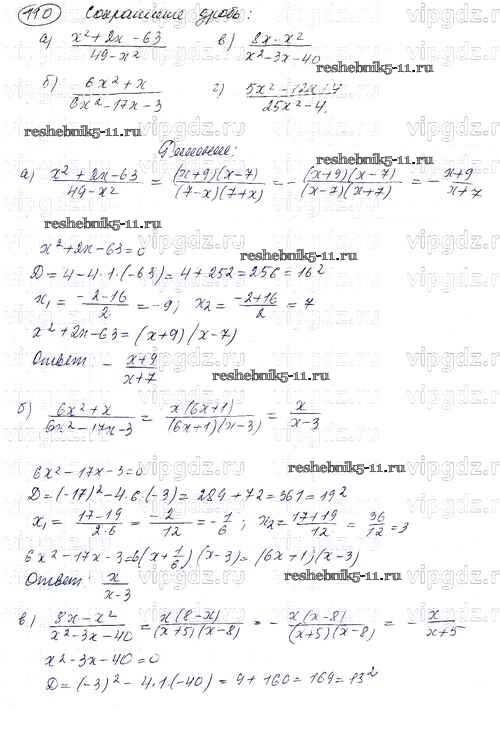 110 Сократите дробь:
а) (x²+2x-63)/(49-x²) в) (8x-x²)/(x²-3x-40)
reshebnik5-11.ru
б) (6x²+x)/(6x²-17x-3) г) /(25x²-4)
reshebnik5-11.ru
reshebnik5-11.ru
Решение:
а) (x²+2x-63)/(49-x²) = ((x+9)(x-7))/((7-x)(7+x)) = -((x+9)(x-7))/((x-7)(x+7)) = -(x+9)/(x+7)
reshebnik5-11.ru
x²+2x-63=0
reshebnik5-11.ru
D=4-4·1·(-63)=4+252=256=16²
x₁=(-2-16)/2=-9; x₂=(-2+16)/2=7
x²+2x-63=(x+9)(x-7)
Ответ: -(x+9)/(x+7)
reshebnik5-11.ru
б) (6x²+x)/(6x²-17x-3) = (x(6x+1))/((6x+1)(x-3)) = x/(x-3)
6x²-17x-3=0
reshebnik5-11.ru
D=(-17)²-4·6·(-3)=289+72=361=19²
x₁=(17-19)/(2·6)=(-2)/12=-1/6; x₂=(17+19)/12=36/12=3
6x²-17x-3=6(x+1/6)(x-3)=(6x+1)(x-3)
Ответ: x/(x-3)
reshebnik5-11.ru
в) (8x-x²)/(x²-3x-40)=(x(8-x))/((x+5)(x-8))=-(x(x-8))/((x+5)(x-8))=-x/(x+5)
x²-3x-40=0
D=(-3)²-4·1·(-40)=9+160=169=13²
vipgdz.ru